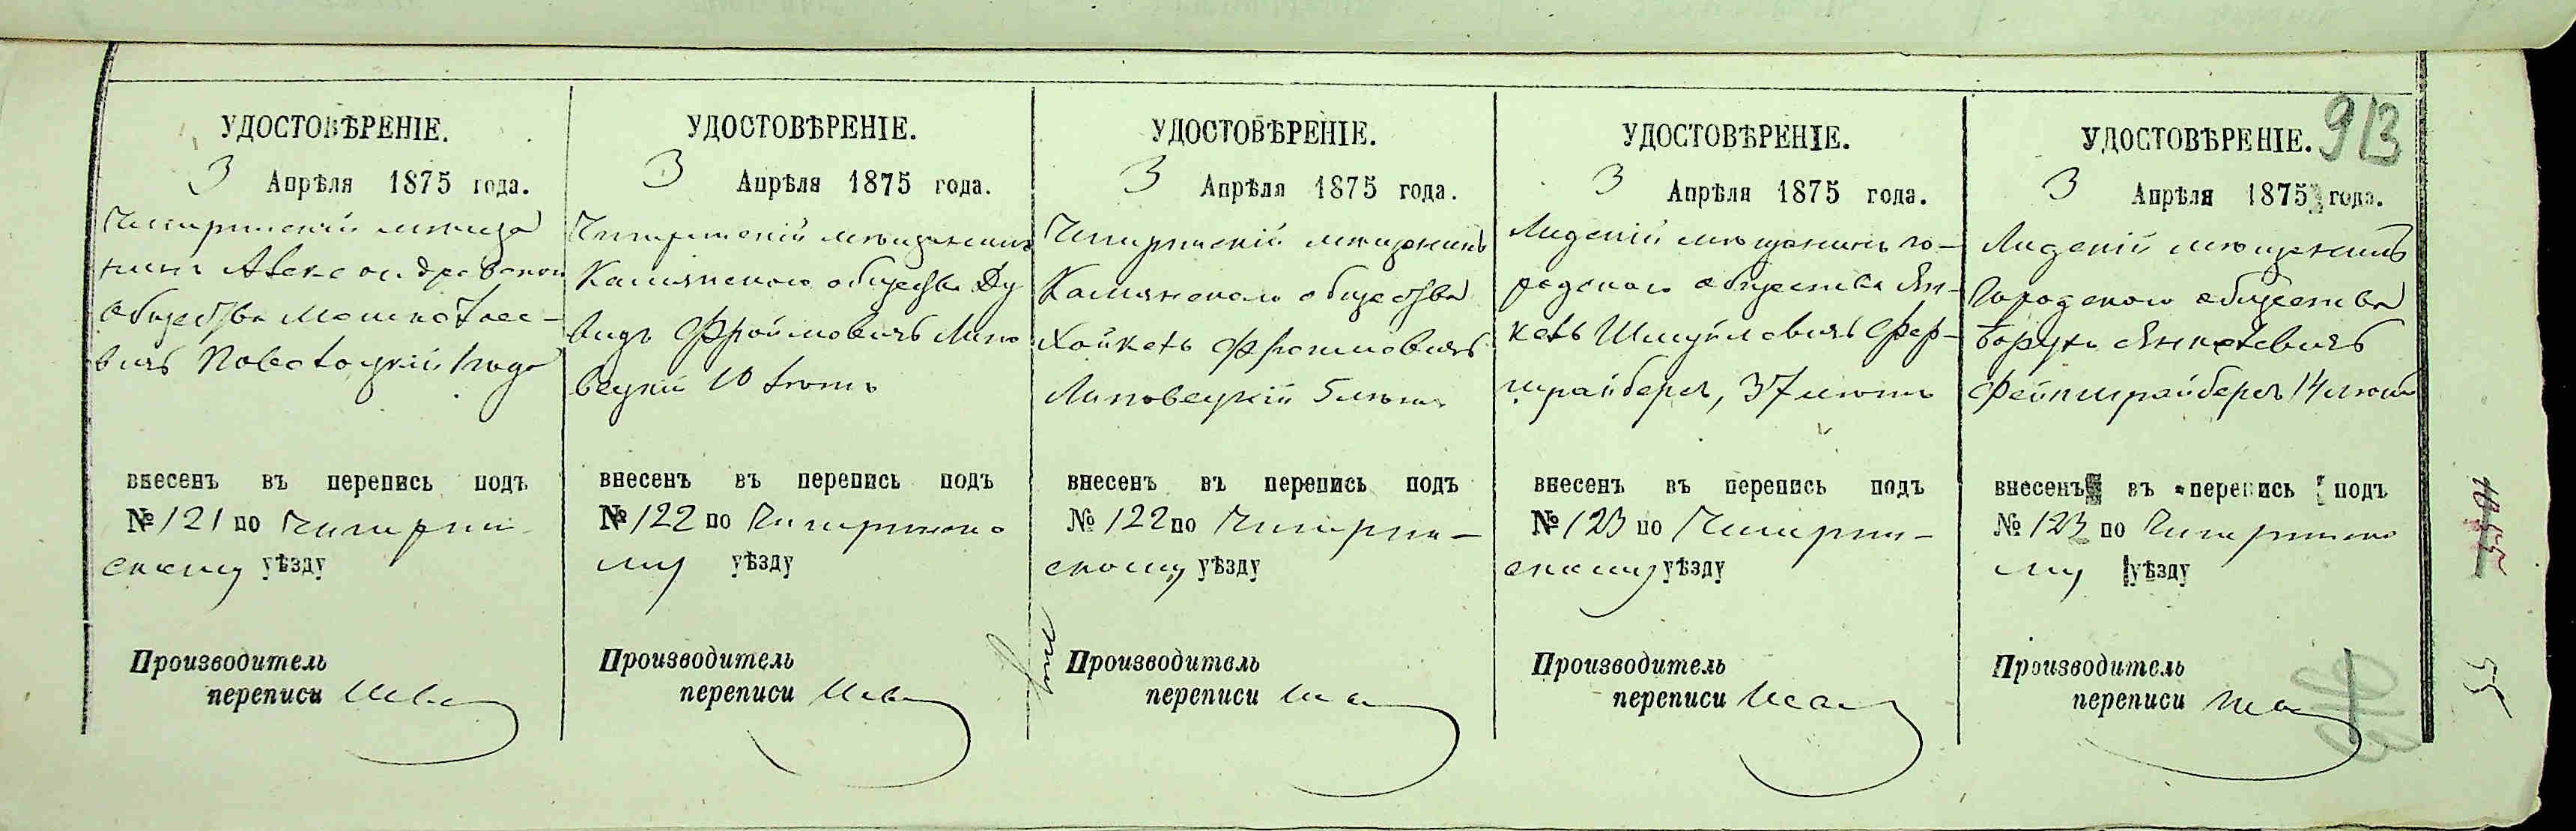 913
УДОСТОВѢРЕНІЕ.
3 Апрѣля 1875 года.
Чигиринскій мѣща
нинъ Александровскаго
общества Мошко
вичъ Поволоцкій 1 года
внесенъ въ перепись подъ
№ 121 по Чигирин-
скому уѣзду
Производитель
переписи
УДОСТОВѢРЕНІЕ.
3 Апрѣля 1875 года.
Чигиринскій мѣщанинъ
Камянскаго общества Ду
видъ Фроимовичъ Липо
вецкій 10 лѣтъ
внесенъ въ перепись подъ
№ 122 по Чигиринско
му уѣзду
Производитель
переписи
УДОСТОВѢРЕНІЕ.
3 Апрѣля 1875 года.
Чигиринскій мѣщанинъ
Камянскаго общества
Хайкель Фроимовичъ
Липовецкій 5 лѣтъ
внесенъ въ перепись подъ
№ 122 по Чигирин-
скому уѣзду
Производитель
переписи
УДОСТОВѢРЕНІЕ.
3 Апрѣля 1875 года.
Лидскій мѣщанинъ го-
родскаго общества Ян-
кель Шмуйловичъ Фер-
шрайберъ, 37 лѣтъ
внесенъ въ перепись подъ
№ 123 по Чигирин-
скому уѣзду
Производитель
переписи
УДОСТОВѢРЕНІЕ.
3 Апрѣля 1875 года.
Лидскій мѣщанинъ
городскаго общества
Борухъ Янкелевичъ
Фейншрайберъ 14 лѣтъ
внесенъ въ перепись подъ
№ 123 по Чигиринско
му уѣзду
Производитель
переписи